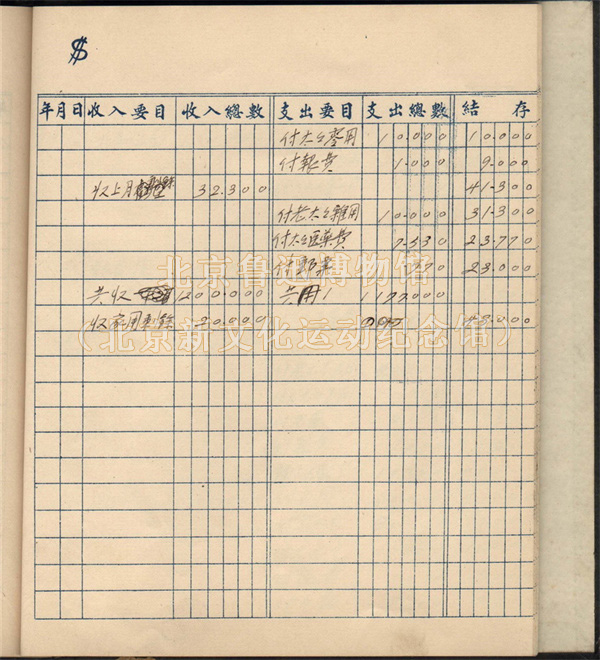 $
年月日 收入要目 收入總數 支出要目 支出總數 結存
付太太零用 10.000 10.000
付報費 1.000 9.000
收上月 32.300 41.300
付老太太雜用 10.000 31.300
付太太医药費 7.530 23.770
付郵票 770 23.000
共收 200.000 共用 177.000
收家用剩餘 20.000 43.000
北京鲁迅博物馆
（北京新文化运动纪念馆）